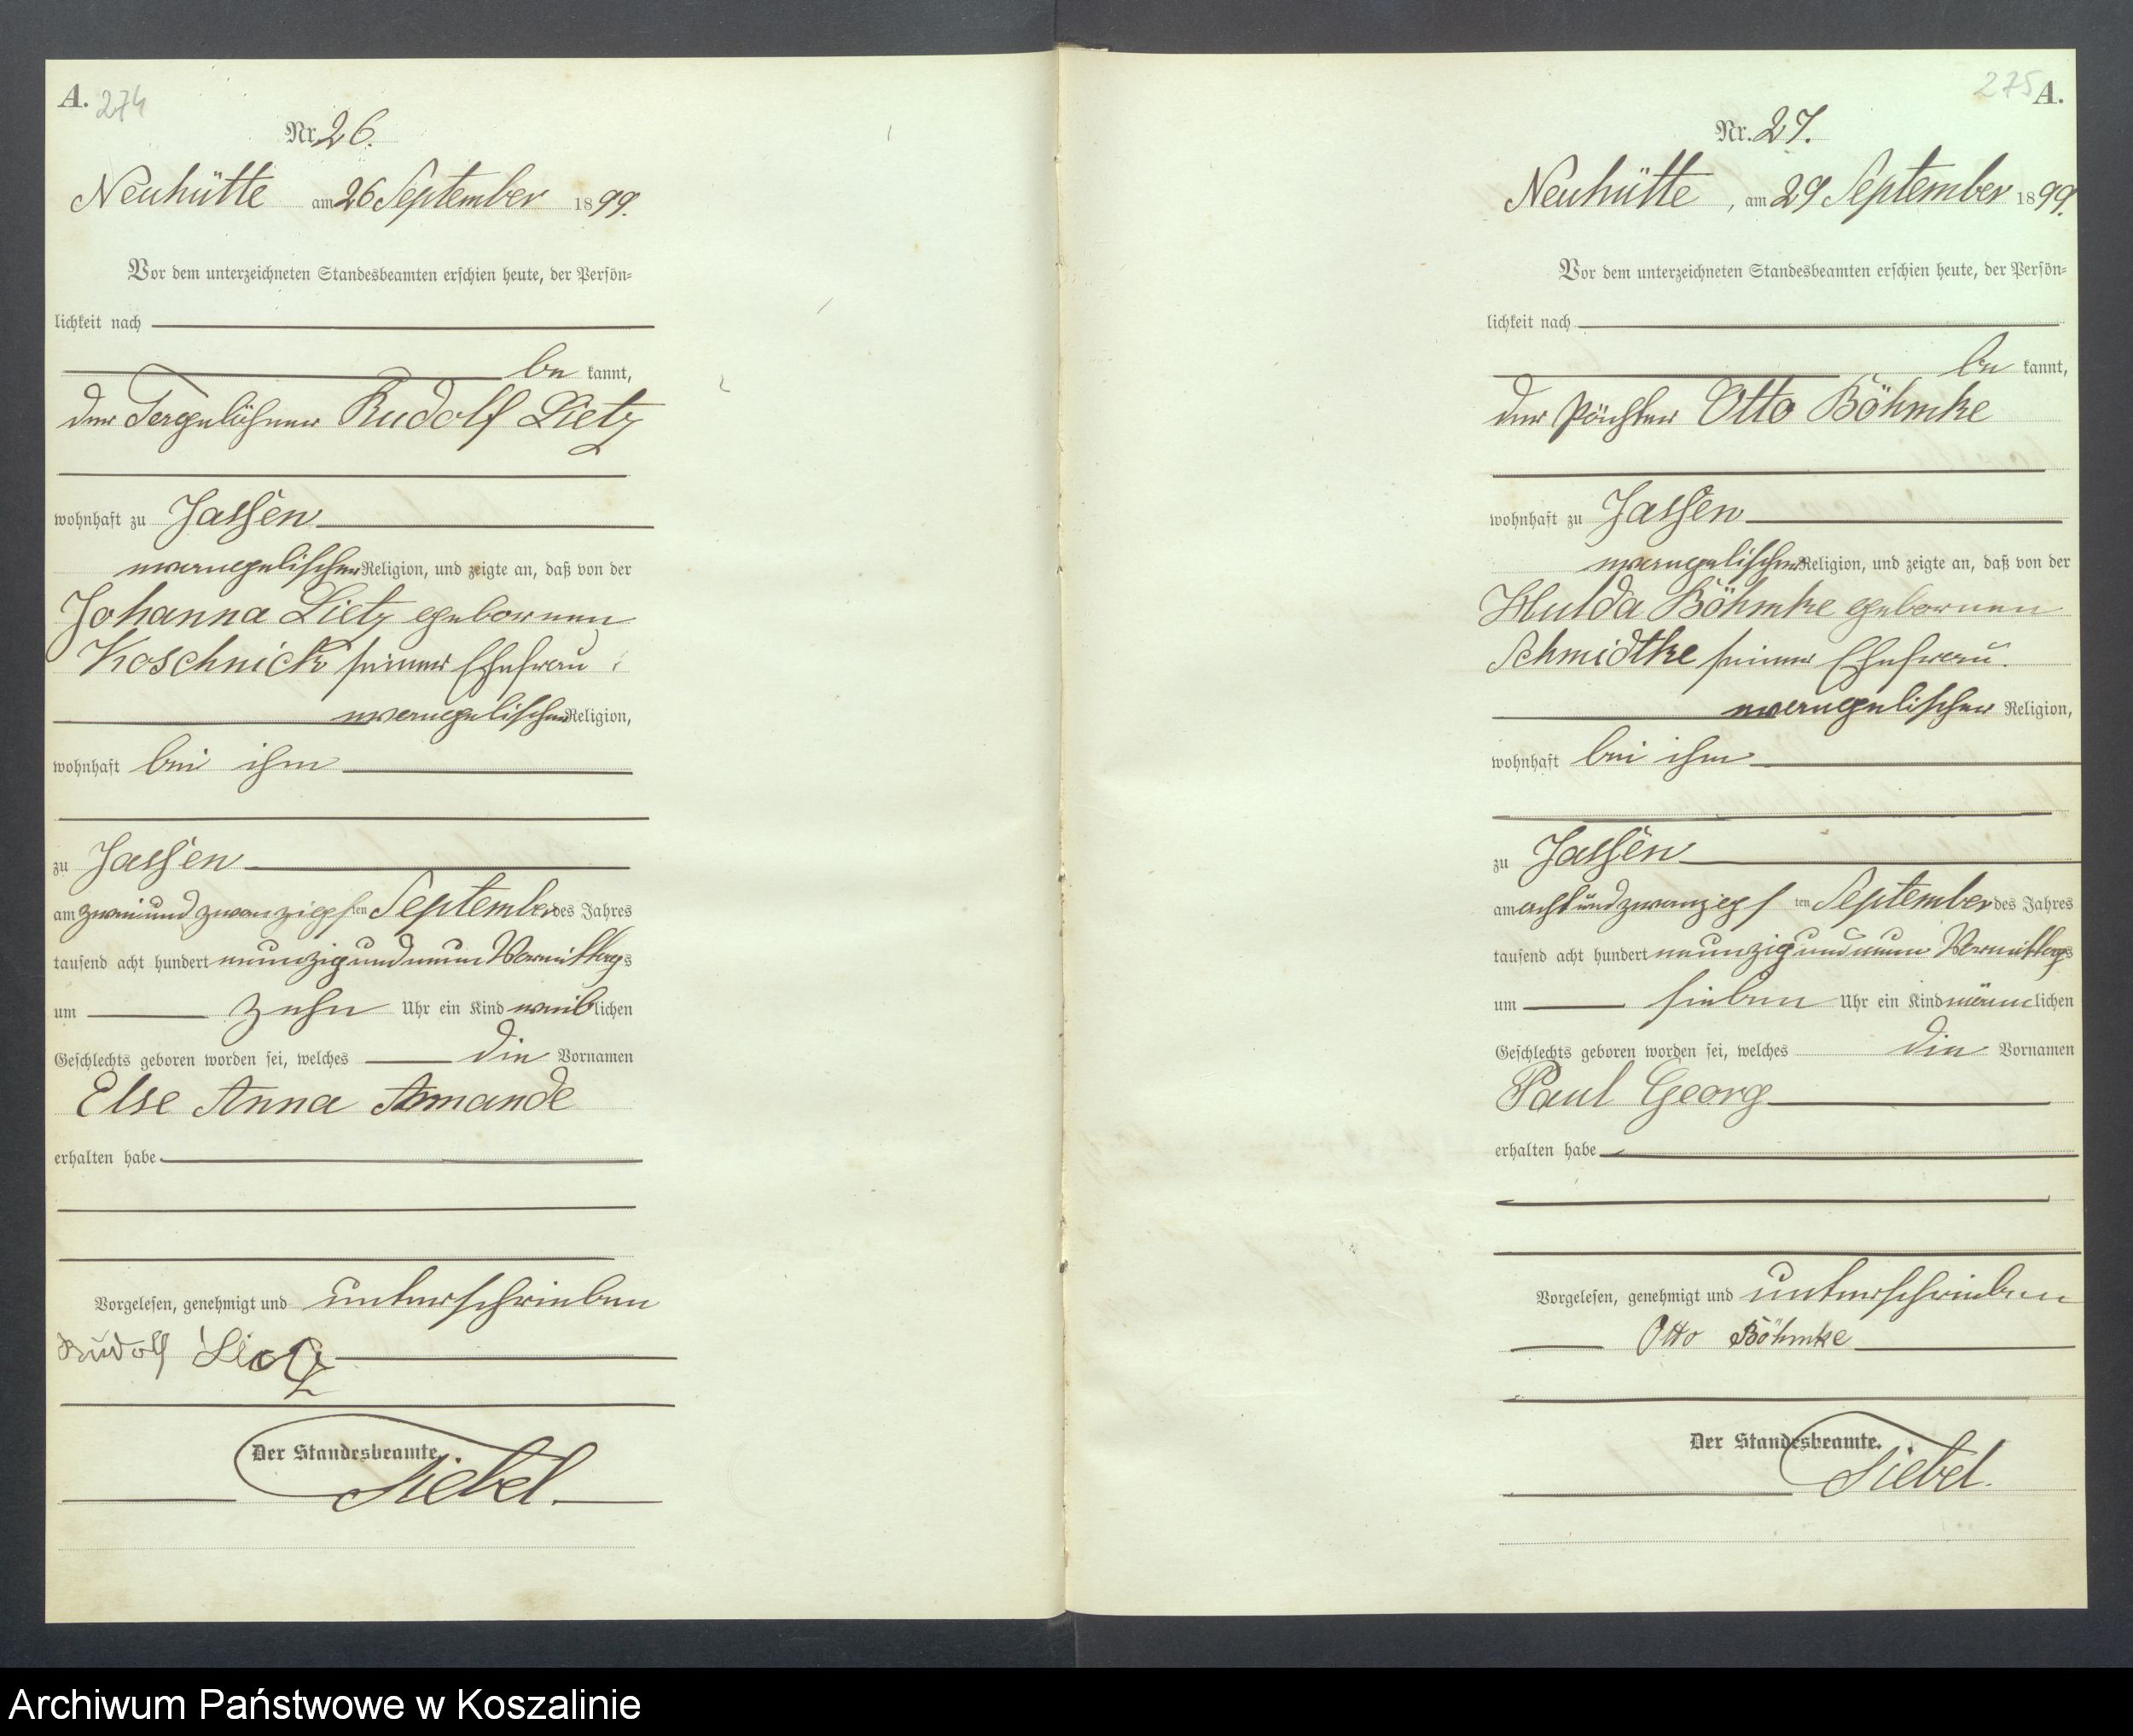 A. 274
Nr. 26.
Neuhütte am 26 September 1899.
Vor dem unterzeichneten Standesbeamten erschien heute, der Persön=
lichkeit nach
be kannt,
der Tagelöhner Rudolf Lietz
wohnhaft zu Jassen
evangelischer Religion, und zeigte an, daß von der
Johanna Lietz geborenen
Koschnick seiner Ehefrau
evangelischer Religion,
wohnhaft bei ihm
zu Jassen
am zweiundzwanzigsten September des Jahres
tausend acht hundert neunzig und neun Vormittags
um zehn Uhr ein Kind weiblichen
Geschlechts geboren worden sei, welches die Vornamen
Else Anna Amande
erhalten habe
Vorgelesen, genehmigt und unterschrieben
Rudolf Lietz
Der Standesbeamte.
Siebel.
275 A.
Nr. 27.
Neuhütte, am 29 September 1899.
Vor dem unterzeichneten Standesbeamten erschien heute, der Persön=
lichkeit nach
be kannt,
der Pächter Otto Böhmke
wohnhaft zu Jassen
evangelischer Religion, und zeigte an, daß von der
Hulda Böhmke geborenen
Schmidtke seiner Ehefrau.
evangelischer Religion,
wohnhaft bei ihm
zu Jassen
am achtundzwanzigsten September des Jahres
tausend acht hundert neunzig und neun Vormittags
um sieben Uhr ein Kind männlichen
Geschlechts geboren worden sei, welches die Vornamen
Paul Georg
erhalten habe
Vorgelesen, genehmigt und unterschrieben
Otto Böhmke
Der Standesbeamte.
Siebel.
Archiwum Państwowe w Koszalinie